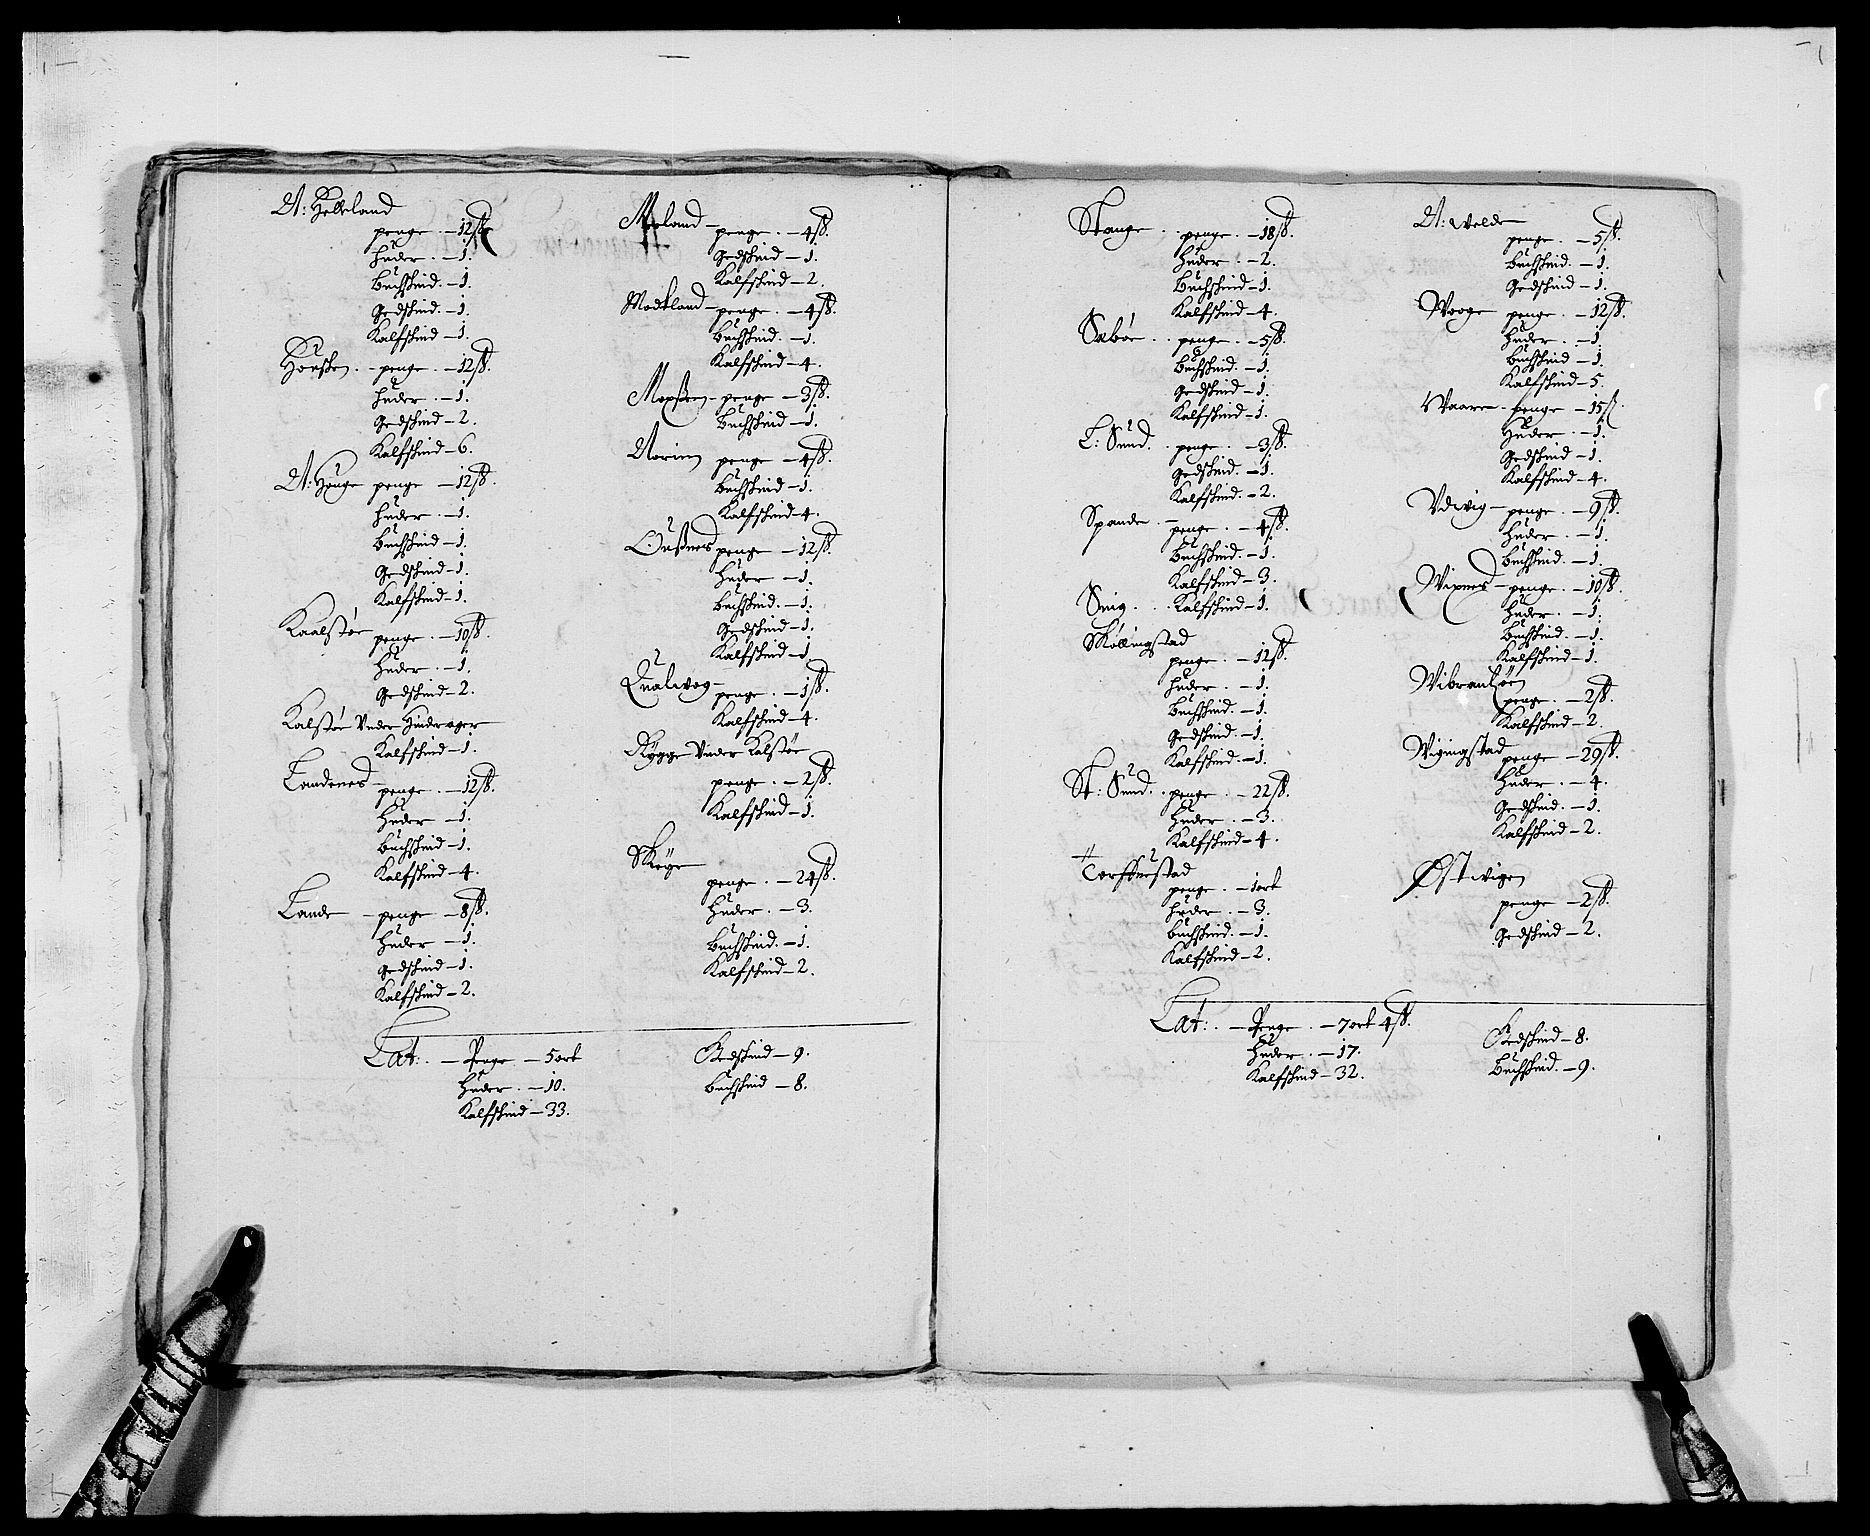 A: Helleland
penge – 12 ß
huder – 1.
Buchskind – 1.
Gedskind – 1.
Kalfskind – 1.
penge – 12 ß.
huder – 1.
Gedskind – 2.
Kalfskind – 6.
A: Houge penge – 12 ß.
huder – 1.
Buchskind – 1.
Gedskind – 1.
Kalfskind – 1.
Kaalstøe penge – 10 ß.
huder – 1.
Gedskind – 2.
Kalstøe Under Hindrager
Kalfskind – 1.
Landenes – penge – 12 ß.
huder – 1.
Buchskind – 1.
Kalfskind – 4.
Lande – penge – 8 ß.
huder – 1.
Gedskind – 1.
Kalfskind – 2.
Meland – penge – 4 ß.
Gedskind – 1.
Kalfskind – 2.
Modtland – penge – 4 ß.
Buchskind – 1.
Kalfskind – 4.
penge – 3 ß.
Buchskind – 1.
Norim penge – 4 ß.
Buchskind – 1.
Kalfskind – 4.
Oußnes penge – 12 ß.
huder – 1.
Buchskind – 1.
Gedskind – 1.
Kalfskind – 1
Qualwog – penge – 1 ß.
Kalfskind – 4.
Rygge Under Kalstøe
penge – 2 ß.
Kalfskind – 1.
Skeye
penge – 24 ß.
huder – 3.
Buchskind – 1.
Kalfskind – 2.
Lat: – Penge – 5 ort
huder – 10.
Kalfskind – 33.
Gedskind – 9.
Buchskind – 8.
Stange penge – 18 ß.
huder – 2.
Buchskind – 1.
Kalfskind – 4.
Sæbøe penge – 5 ß.
Buchskind – 1.
Gedskind – 1.
Kalfskind – 1.
L: Sund penge – 3 ß.
Gedskind – 1.
Kalfskind – 2.
Spande – penge – 4 ß.
Buchskind – 1.
Kalfskind – 3.
Snig Kalfskind – 1.
Skollingstad
penge – 12 ß.
huder – 1.
Buchskind – 1.
Gedskind – 1.
Kalfskind – 1.
St: Sund penge – 22 ß.
huder – 3.
Kalfskind – 4.
penge – 1 ort
huder – 3.
Buchskind – 1.
Kalfskind – 2.
A: Welde
penge – 5 ß.
Buchskind – 1.
Gedskind – 1.
Wooge penge – 12 ß.
huder – 1.
Buchskind – 1.
Kalfskind – 5.
Waare – penge – 15 ß.
Huder – 1.
Gedskind – 1.
Kalfskind – 4.
Udvig – penge – 9 ß.
huder – 1.
Buchskind – 1.
Wixnes – penge – 10 ß.
huder – 1.
Buchskind – 1.
Kalfskind – 1.
Wibrandsøen
penge – 2 ß.
Kalfskind – 2.
Wigingstad penge – 29 ß.
huder – 4.
Gedskind – 1.
Kalfskind – 2.
Østwigen
penge – 2 ß.
Gedskind – 2.
Lat: – Penge – 7 ort 4 ß.
huder – 17.
Kalfskind – 32.
Gedskind – 8.
Buchskind – 9.